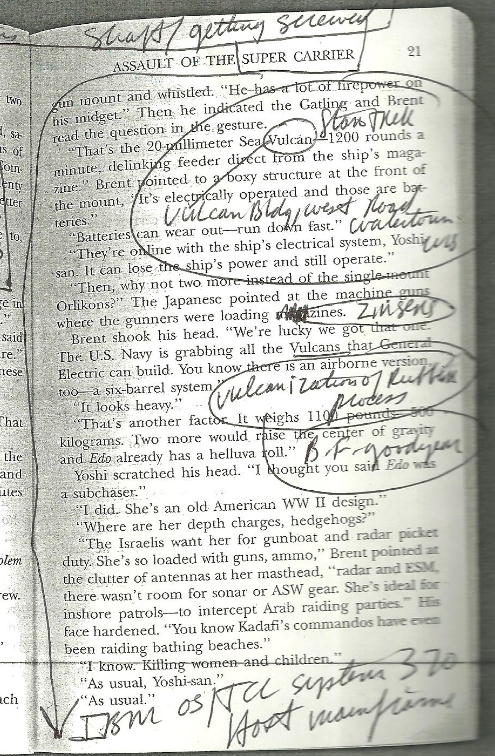 shaft/getting screwey
ASSAULT OF THE SUPER CARRIER 21
gun mount and whistled. "He has a lot of firepower on
his midget." Then he indicated the Gatling and Brent
read the question in the gesture.
Star Trek
"That's the 20-millimeter Sea Vulcan—1200 rounds a
minute, delinking feeder direct from the ship's maga-
zine." Brent pointed to a boxy structure at the front of
the mount, "It's electrically operated and those are bat-
teries."
Vulcan Bldg, west Road
"Batteries can wear out—run down fast."
Watertown
"They're online with the ship's electrical system, Yoshi-
san. It can lose the ship's power and still operate."
"Then, why not two more instead of the single-mount
Orlikons?" The Japanese pointed at the machine guns
where the gunners were loading
Zinsens
Brent shook his head. "We're lucky we got that one.
The U.S. Navy is grabbing all the Vulcans that General
Electric can build. You know there is an airborne version,
too—a six-barrel system
"It looks heavy."
vulcanization of Rubber
process
"That's another factor. It weighs 1100 pounds—500
kilograms. Two more would raise the center of gravity
and Edo already has a helluva roll."
B.F. goodyear
Yoshi scratched his head. "I thought you said Edo was
a subchaser."
"I did. She's an old American WW II design."
"Where are her depth charges, hedgehogs?"
"The Israelis want her for gunboat and radar picket
duty. She's so loaded with guns, ammo," Brent pointed at
the clutter of antennas at her masthead, "radar and ESM,
there wasn't room for sonar or ASW gear. She's ideal for
inshore patrols—to intercept Arab raiding parties." His
face hardened. "You know Kadafi's commandos have even
been raiding bathing beaches."
"I know. Killing women and children."
"As usual, Yoshi-san."
"As usual."
IBM OS/TCC system 370
Host mainframe